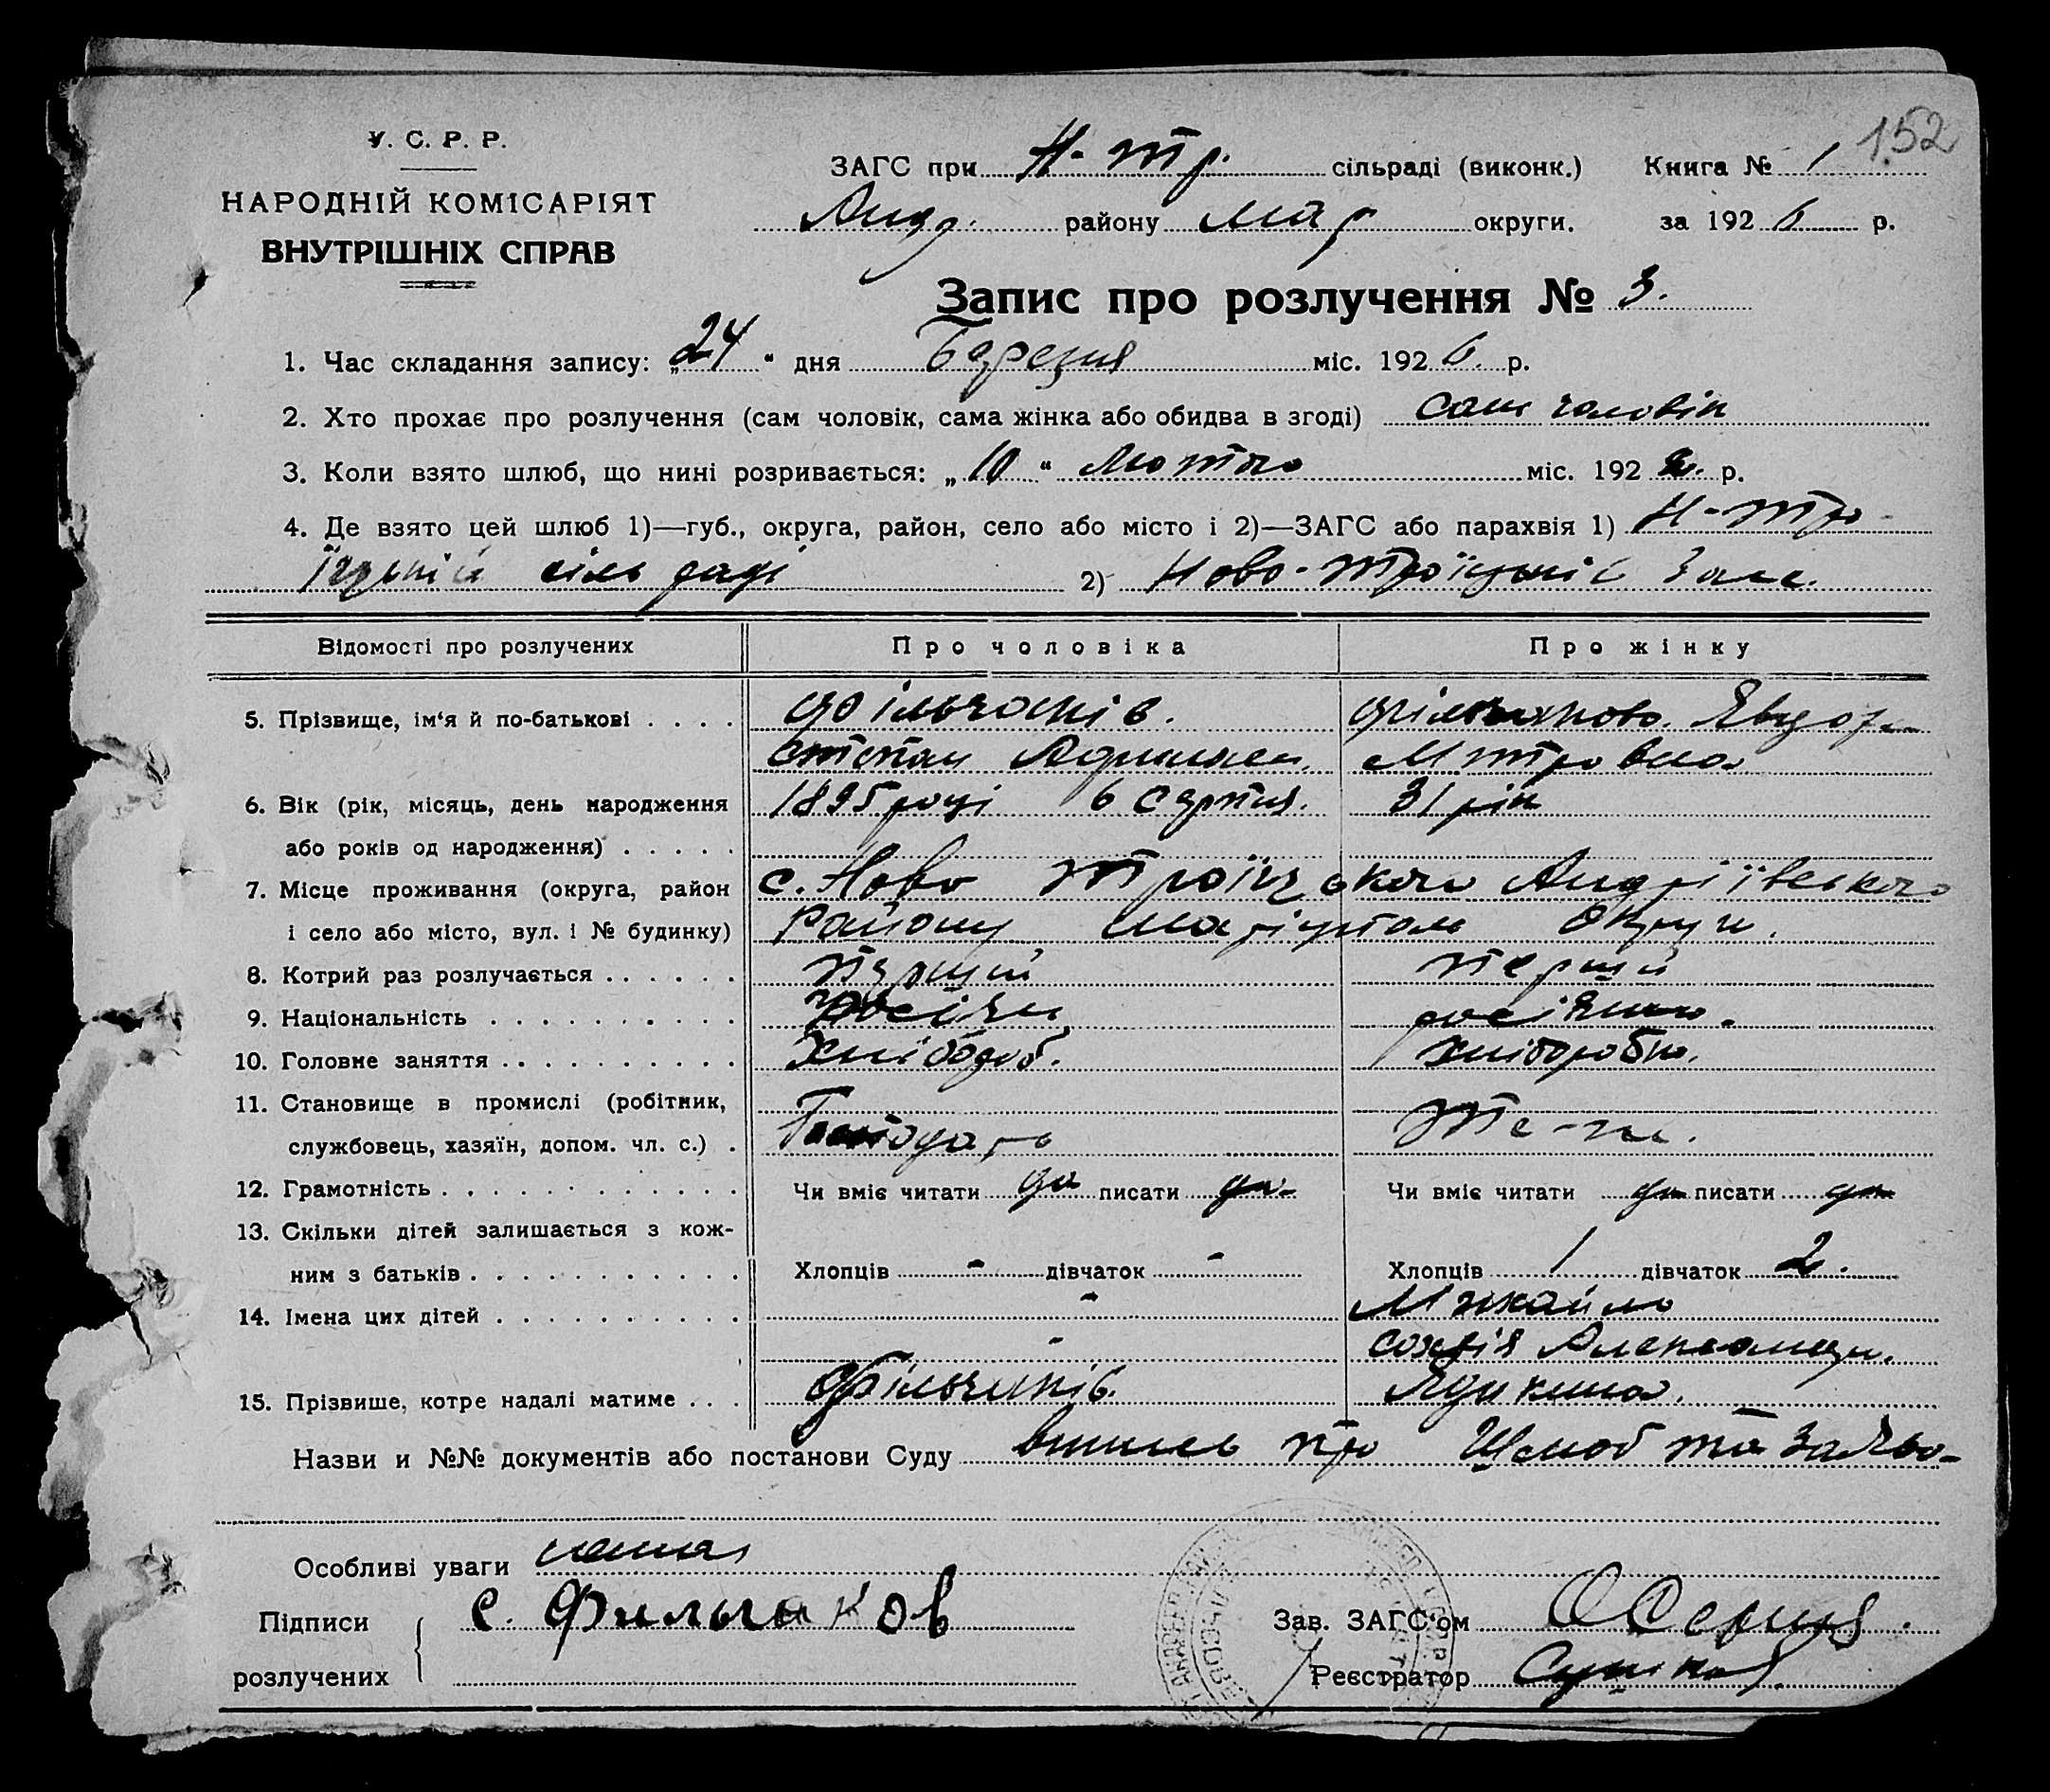 152
У. С. Р. Р.
НАРОДНІЙ КОМІСАРІЯТ
ВНУТРІШНІХ СПРАВ
ЗАГС при Н-Тр. сільраді (виконк.) Книга № 1
Андр. району Мар округи. за 1926 р.
Запис про розлучення № 3.
1. Час складання запису: „24“ дня Березня міс. 1926. р.
2. Хто прохає про розлучення (сам чоловік, сама жінка або обидва в згоді) сам чоловік
3. Коли взято шлюб, що нині розривається: „10“ Лютого міс. 192 р.
4. Де взято цей шлюб 1)—губ., округа, район, село або місто і 2)—ЗАГС або парахвія 1) Н-Тро-
їцькій сіль раді 2) Ново-Троїцькій Загс.
Відомості про розлучених Про чоловіка Про жінку
5. Прізвище, ім'я й по-батькові . . . . Фільчаків. Фільчакова. Явдо
Степан Митровна
6. Вік (рік, місяць, день народження 1895 році 6 Серпня. 31 рік
або років од народження) . . . . .
7. Місце проживання (округа, район с. Ново Троїцького Андріївського
і село або місто, вул. і № будинку) Району Маріупол Округи.
8. Котрий раз розлучається . . . . . . перший перший
9. Національність . . . . . . . . . . росіянка.
10. Головне заняття . . . . . . . . . Хлібороб. хлібороб
11. Становище в промислі (робітник,
службовець, хазяїн, допом. чл. с.) . Господарь Те-ж.
12. Грамотність . . . . . . . . . . . . Чи вміє читати да писати да Чи вміє читати да писати да
13. Скільки дітей залишається з кож-
ним з батьків . . . . . . . . . . . Хлопців - дівчаток - Хлопців 1 дівчаток 2.
14. Імена цих дітей . . . . . . . . . . - Михайло
- Софія Александ.
15. Прізвише, котре надалі матиме . . . Фільчаків.
Назви и №№ документів або постанови Суду випись про Шлюб та Заяво-
Особливі уваги нема
Підписи с. Филчаков Зав. ЗАГС'ом
розлучених Реєстратор